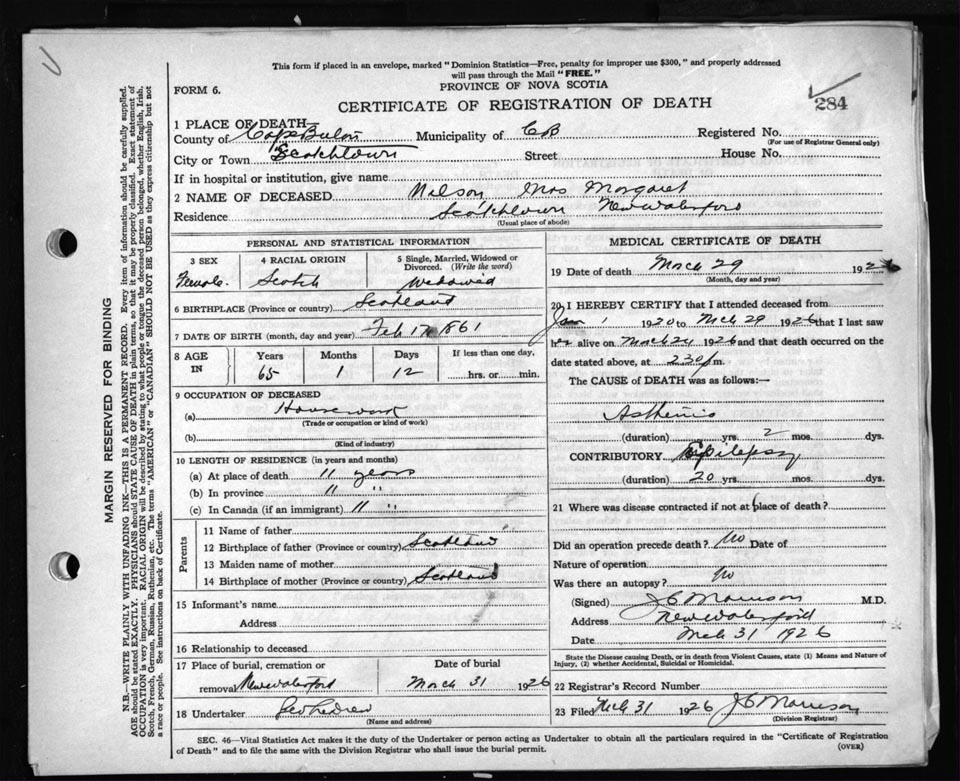 This form if placed in an envelope, marked "Dominion Statistics—Free, penalty for improper use $300," and properly addressed
will pass through the Mail "FREE."
FORM 6.
PROVINCE OF NOVA SCOTIA
284
CERTIFICATE OF REGISTRATION OF DEATH
1 PLACE OF DEATH—
County of Cape Breton Municipality of C B Registered No.
(For use of Registrar General only)
City or Town Scotchtown Street House No.
If in hospital or institution, give name
2 NAME OF DECEASED Nelson, Mrs Margaret
Residence Scotchtown New Waterford
(Usual place of abode)
PERSONAL AND STATISTICAL INFORMATION
3 SEX
Female
4 RACIAL ORIGIN
Scotch
5 Single, Married, Widowed or
Divorced. (Write the word)
Widowed
6 BIRTHPLACE (Province or country) Scotland
7 DATE OF BIRTH (month, day and year) Feb 17 1861
8 AGE IN
Years Months Days If less than one day,
65 1 12 hrs. or min.
9 OCCUPATION OF DECEASED
(a) Housework
(Trade or occupation or kind of work)
(b)
(Kind of industry)
10 LENGTH OF RESIDENCE (in years and months)
(a) At place of death 11 years
(b) In province 11 "
(c) In Canada (if an immigrant) 11 "
Parents
11 Name of father
12 Birthplace of father (Province or country) Scotland
13 Maiden name of mother
14 Birthplace of mother (Province or country) Scotland
15 Informant's name
Address
16 Relationship to deceased
17 Place of burial, cremation or Date of burial
removal New Waterford March 31 1926
18 Undertaker
(Name and address)
MEDICAL CERTIFICATE OF DEATH
19 Date of death March 29 1926
(Month, day and year)
20 I HEREBY CERTIFY that I attended deceased from
Jan 1 1920 to Mch 29 1926 that I last saw
her alive on March 24 1926 and that death occurred on the
date stated above, at 230 p m.
The CAUSE of DEATH was as follows:—
Asthenia
(duration) yrs. 2 mos. dys.
CONTRIBUTORY Epilepsy
(duration) 20 yrs. mos. dys.
21 Where was disease contracted if not at place of death?
Did an operation precede death? No Date of
Nature of operation
Was there an autopsy? No
(Signed) J C Morrison M.D.
Address New Waterford
Date Mch 31 1926
State the Disease causing Death, or in death from Violent Causes, state (1) Means and Nature of
Injury, (2) whether Accidental, Suicidal or Homicidal.
22 Registrar's Record Number
23 Filed Mch 31 1926 J C Morrison
(Division Registrar)
SEC. 46—Vital Statistics Act makes it the duty of the Undertaker or person acting as Undertaker to obtain all the particulars required in the "Certificate of Registration
of Death" and to file the same with the Division Registrar who shall issue the burial permit.
(OVER)
MARGIN RESERVED FOR BINDING
N.B.—WRITE PLAINLY WITH UNFADING INK—THIS IS A PERMANENT RECORD. Every item of information should be carefully supplied.
AGE should be stated EXACTLY. PHYSICIANS should STATE CAUSE OF DEATH in plain terms, so that it may be properly classified. Exact statement of
OCCUPATION is very important. RACIAL ORIGIN will be described by stating to what people or tongue the deceased person belonged, whether English, Irish,
Scotch, French, German, Russian, Ruthenian, etc. The terms "AMERICAN" or "CANADIAN" SHOULD NOT BE USED as they express citizenship but not
a race or people. See instructions on back of Certificate.